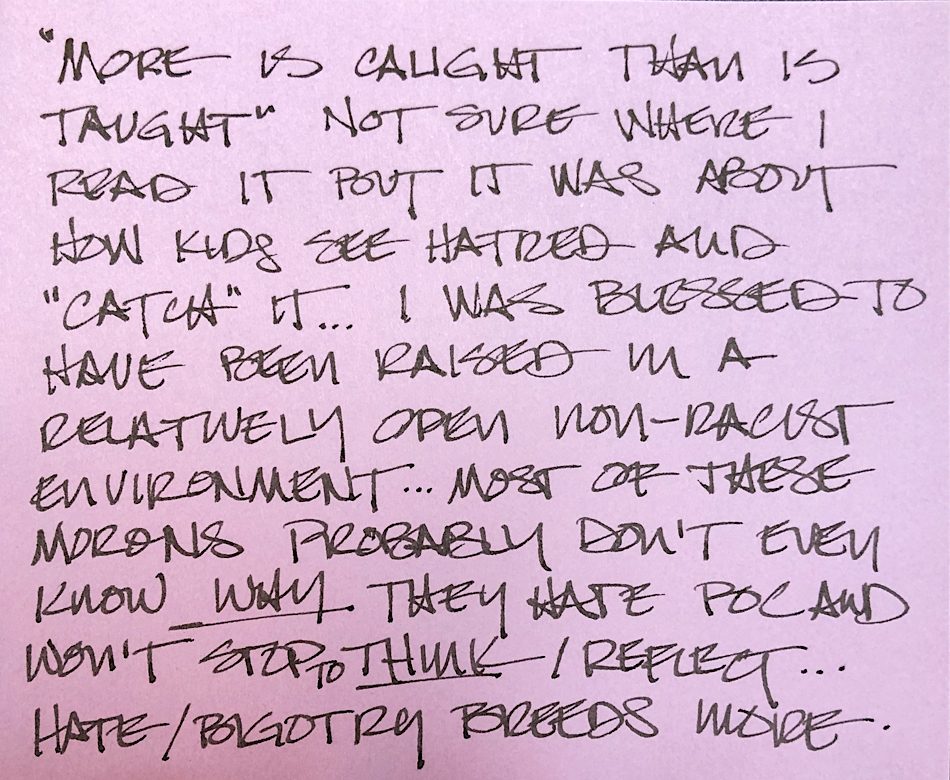 "MORE IS CAUGHT THAN IS
TAUGHT" NOT SURE WHERE I
READ IT BUT IT WAS ABOUT
HOW KIDS SEE HATRED AND
"CATCH" IT... I WAS BLESSED TO
HAVE BEEN RAISED IN A
RELATIVELY OPEN NON-RACIST
ENVIRONMENT... MOST OF THESE
MORONS PROBABLY DON'T EVEN
KNOW WHY THEY HATE POC AND
WON'T STOP TO THINK / REFLECT...
HATE/BIGOTRY BREEDS MORE.